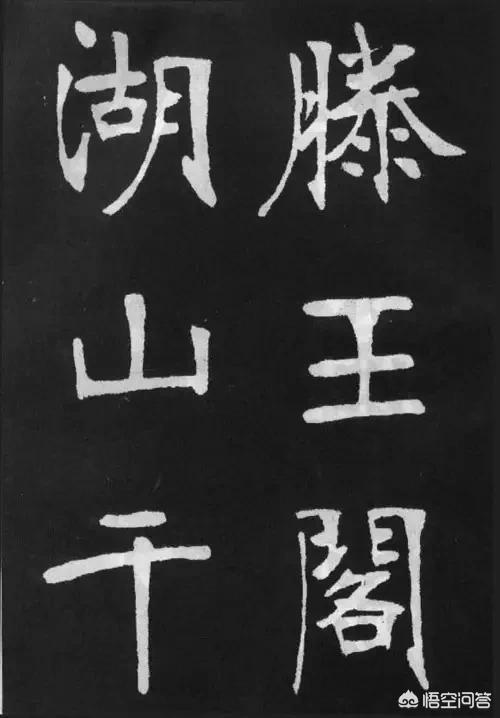 滕王閣
湖山千
悟空问答